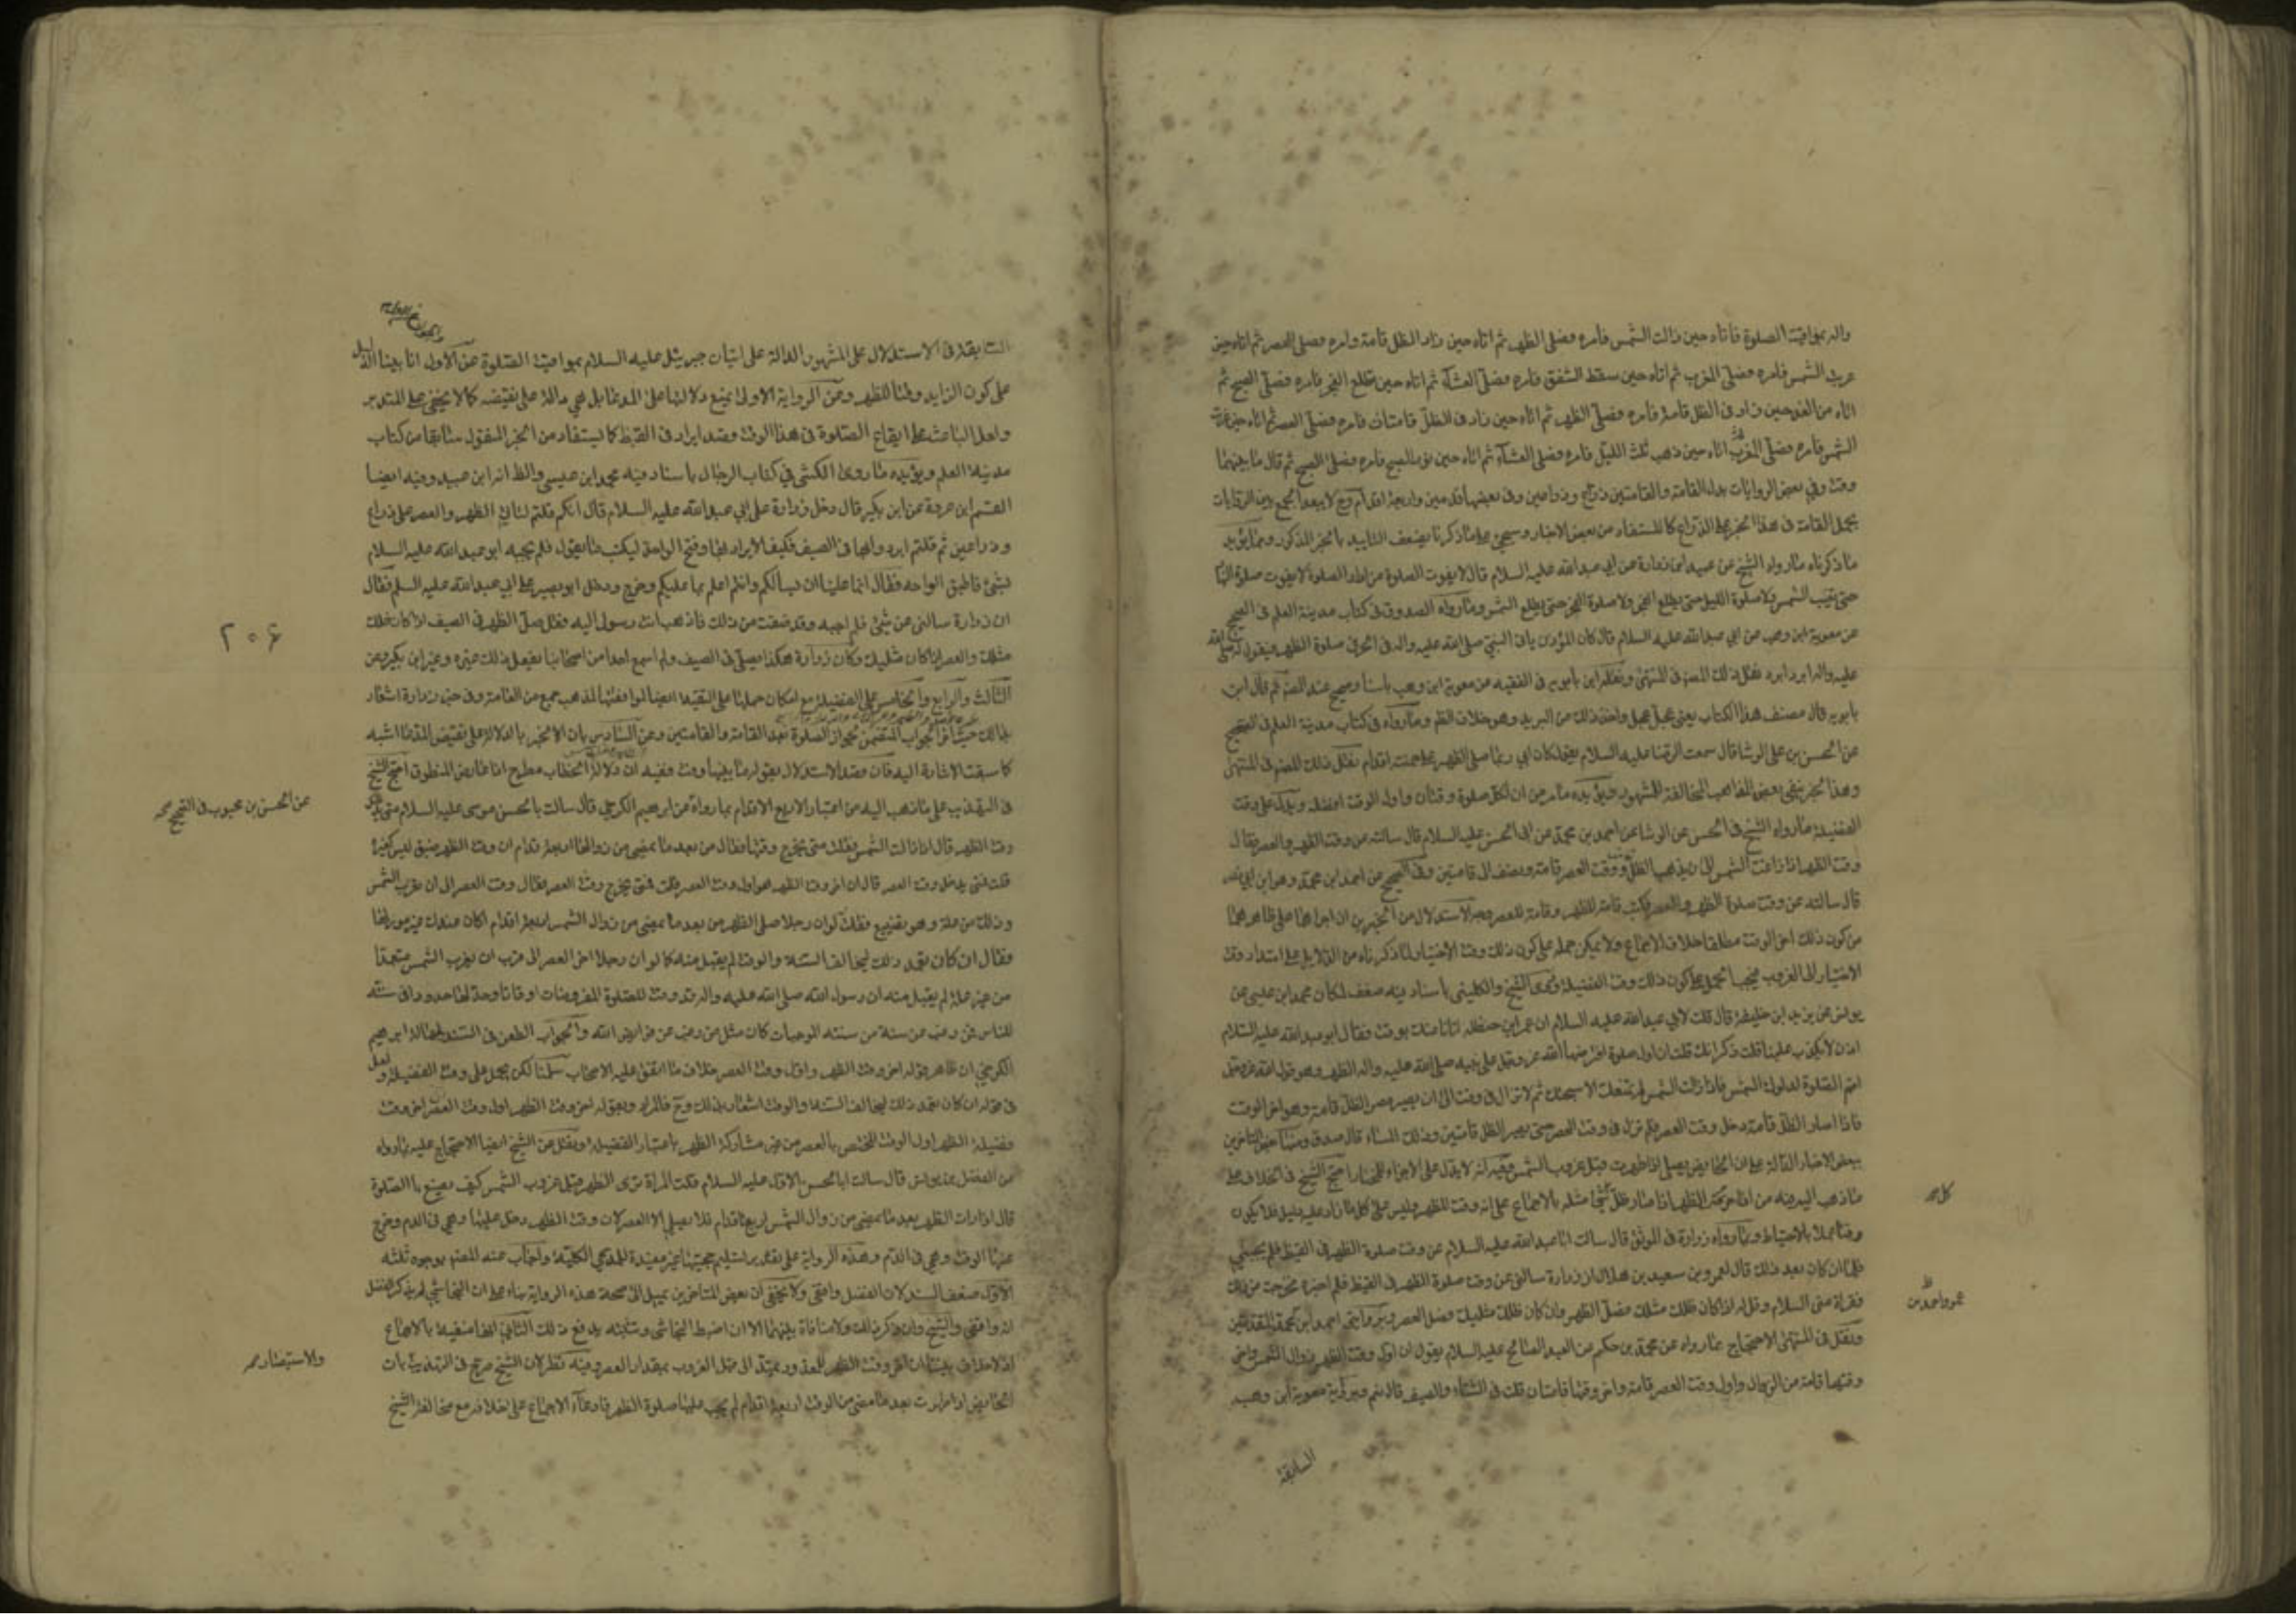 واله بمواقيت الصلوة فاتاه حين زالت الشمس فامره فصلى الظهر ثم اتاه حين زاد الظل قامة فامره فصلى العصر ثم اتاه حين
غربت الشمس فامره فصلى المغرب ثم اتاه حين سقط الشفق فامره فصلى العشاء ثم اتاه حين طلع الفجر فامره فصلى الصبح ثم
اتاه من الغد حين زاد فى الظل قامة فامره فصلى الظهر ثم اتاه حين زاد فى الظل قامتان فامره فصلى العصر ثم اتاه حين غربت
الشمس فامره فصلى المغرب ثم اتاه حين ذهب ثلث الليل فامره فصلى العشاء ثم اتاه حين نور الصبح فامره فصلى الصبح ثم قال ما بينهما
وقت وفي بعض الروايات بدل القامة والقامتين ذراع وذراعين وفى بعضها قدمين واربعة اقدام وح لا يبعد الجمع بين الروايات
بحمل القامة فى هذا الخبر على الذراع كما يستفاد من بعض الاخبار وسيجئ على ما ذكرنا يضعف التاييد بالخبر المذكور ومما يؤيد
ما ذكرناه ما رواه الشيخ عن عبيد بن زرارة عن ابي عبد الله عليه السلام قال لا يفوت الصلوة من اراد الصلوة لا يفوت صلوة النهار
حتى تغيب الشمس ولا صلوة الليل حتى يطلع الفجر ولا صلوة الفجر حتى يطلع الشمس وما رواه الصدوق فى كتاب مدينة العلم فى الصحيح
عن معوية ابن وهب عن ابي عبد الله عليه السلام قال كان المؤذن ياتى النبي صلى الله عليه واله فى الحر فى صلوة الظهر فيقول له صلى الله
عليه واله ابرد ابرد نقل ذلك المصنف فى المنتهى ونقله ابن بابويه فى الفقيه عن معوية ابن وهب باسناد صحيح عند المصنف ثم قال ابن
بابويه قال مصنف هذا الكتاب يعنى عجل عجل واخذ ذلك من البريد وهو خلاف الظم وما رواه فى كتاب مدينة العلم فى الصحيح
عن الحسن بن على الوشا قال سمعت الرضا عليه السلام يقول كان ابي ربما صلى الظهر على خمسة اقدام نقل ذلك المصنف فى المنتهى
وهذا الخبر ينفى بعض المذاهب المخالفة للمشهور ويؤيده ما مر من ان لكل صلوة وقتان واول الوقت افضله ويدل على وقت
الفضيلة ما رواه الشيخ فى الحسن عن الوشا عن احمد بن محمد عن ابى الحسن عليه السلام قال سالته عن وقت الظهر والعصر فقال
وقت الظهر اذا زاغت الشمس الى ان يذهب الظل قامة ووقت العصر قامة ونصف الى قامتين وفى الصحيح عن احمد ابن محمد وهو ابن ابي نصر
قال سالته عن وقت صلوة الظهر والعصر فكتب قامة للظهر وقامة للعصر وجه الاستدلال من الخبرين ان اجراهما على ظاهرهما
من كون ذلك اخر الوقت مطلقا خلاف الاجماع ولا يمكن حمله على كون ذلك وقت الاختيار لما ذكرناه من الدلايل على امتداد وقت
الاختيار الى الغروب فيجب الحمل على كون ذلك وقت الفضيلة وروى الشيخ والكلينى باسناد فيه ضعف لمكان محمد ابن عيسى عن
يونس عن يزيد ابن خليفة قال قلت لابي عبد الله عليه السلام ان عمر ابن حنظله اتانا عنك بوقت فقال ابو عبد الله عليه السلام
اذن لا يكذب علينا قلت ذكر انك قلت ان اول صلوة افترضها الله عز وجل على نبيه صلى الله عليه واله الظهر وهو قول الله عز وجل
اقم الصلوة لدلوك الشمس فاذا زالت الشمس لم يمنعك الا سبحتك ثم لا تزال فى وقت الى ان يصير الظل قامة وهو اخر الوقت
فاذا صار الظل قامة دخل وقت العصر فلم تزل فى وقت العصر حتى يصير الظل قامتين وذلك المساء قال صدق ومنها
بعض الاخبار الدالة على ان الحايض يصلى اذا طهرت قبل غروب الشمس وفيه انه لا يدل على الاجزاء للمختار احتج الشيخ فى الخلاف على
ما ذهب اليه فيه من ان اخر وقت الظهر اذا صار ظل كل شئ مثله بالاجماع على انه وقت للظهر وليس على كل ما زاد عليه دليل فلا يكون
وقتا عملا بالاحتياط وبما رواه زرارة فى الموثق قال سالت ابا عبد الله عليه السلام عن وقت صلوة الظهر فى القيظ فلم يجبني
فلما ان كان بعد ذلك قال لعمرو بن سعيد بن هلال ان زرارة سالنى عن وقت صلوة الظهر فى القيظ فلم اخبره فحرجت من ذلك
فقراه منى السلام وقل له اذا كان ظلك مثلك فصل الظهر وان كان ظلك مثليك فصل العصر وبروايتى احمد ابن محمد المتقدمتين
ونقل فى المنتهى الاحتجاج بما رواه عن محمد بن حكيم عن العبد الصالح عليه السلام يقول ان اول وقت الظهر زوال الشمس واخر
وقتها قامة من الزوال واول وقت العصر قامة واخر وقتها قامتان قلت فى الشتاء والصيف قال نعم وبرواية معوية ابن وهب
السابقة
كل صح
السابقة فى الاستدلال على المشهور الدالة على اتيان جبرئيل عليه السلام بمواقيت الصلوة عن الاول انا بينا الدليل
على كون الزايد وقتا للظهر وعن الرواية الاولى بمنع دلالتها على المدعا بل هي دالة على نقيضه كما لا يخفى على المتدبر
ولعل الباعث على ايقاع الصلوة فى هذا الوقت قصد ايراد فى القيظ كما يستفاد من الخبر المنقول سابقا من كتاب
مدينة العلم ويؤيده ما روى الكشي في كتاب الرجال باسناد فيه محمد ابن عيسى والظ انه ابن عبيد وفيه ايضا
القسم ابن عروة عن ابن بكير قال دخل زرارة على ابي عبد الله عليه السلام قال انكم قلتم لنا فى الظهر والعصر على ذراع
وذراعين ثم قلتم ابردوا بها فى الصيف فكيف الابراد بها وفتح الواحه ليكتب ما يقول فلم يجبه ابو عبد الله عليه السلام
بشئ فاطبق الواحه فقال انما علينا ان نسالكم وانتم اعلم بما عليكم وخرج ودخل ابو بصير على ابي عبد الله عليه السلم فقال
ان زرارة سالنى عن شئ فلم اجبه وقد ضقت من ذلك فاذهب انت رسولى اليه وقل صل الظهر فى الصيف اذا كان ظلك
مثلك والعصر اذا كان مثليك وكان زرارة هكذا يصلى فى الصيف ولم اسمع احدا من اصحابنا يفعل ذلك غيره وغير ابن بكير وعن
الثالث والرابع والخامس بالحمل على الفضيلة مع امكان حملها على التقية ايضا لموافقتها لمذهب جمع من العامة وفى خبر زرارة اشعار
بذالك حيث اخر الجواب المتضمن لجواز الصلوة بعد القامة والقامتين وعن السادس بان الاخبر بالدلالة على نقيض المدعا اشبه
كما سبقت الاشارة اليه فان قصد الاستدلال بقوله ما بينهما وقت ففيه ان دلالة الخطاب مطرح اذا عارض المنطوق احتج الشيخ
فى التهذيب على ما ذهب اليه من اعتبار الاربع الاقدام بما رواه عن ابرهيم الكرخي قال سالت ابا الحسن موسى عليه السلام متى يدخل
وقت الظهر قال اذا زالت الشمس فقلت متى يخرج وقتها فقال من بعد ما يمضى من زوالها اربعة اقدام ان وقت الظهر ضيق ليس كغيره
قلت فمتى يدخل وقت العصر قال ان اخر وقت الظهر هو اول وقت العصر فقلت فمتى يخرج وقت العصر فقال وقت العصر الى ان تغرب الشمس
وذلك من علة وهو تضييع فقلت له لو ان رجلا صلى الظهر من بعد ما يمضى من زوال الشمس اربعة اقدام اكان عندك غير مؤد لها
فقال ان كان تعمد ذلك ليخالف السنة والوقت لم يقبل منه كما لو ان رجلا اخر العصر الى قرب ان يغرب الشمس متعمدا
من غير علة لم يقبل منه ان رسول الله صلى الله عليه واله قد وقت للصلوة المفروضات اوقاتا وحد لها حدودا فى سنته
للناس فمن رغب عن سنة من سننه الموجبات كان مثل من رغب عن فرايض الله والجواب الطعن فى السند لجهالة ابرهيم
الكرخي ان ظاهر قوله اخر وقت الظهر واول وقت العصر خلاف ما اتفق عليه الاصحاب سلمنا لكن يحمل على وقت الفضيلة ولعل
فى قوله ان كان تعمد ذلك ليخالف السنة والوقت اشعار بذلك وح فالمراد بقوله اخر وقت الظهر اول وقت العصر اخر وقت
فضيلة الظهر اول الوقت المختص بالعصر من غير مشاركة الظهر باعتبار الفضيلة ونقل عن الشيخ ايضا الاحتجاج عليه بما رواه
عن الفضل بن يونس قال سالت ابا الحسن الاول عليه السلام قلت المراة ترى الطهر قبل غروب الشمس كيف تصنع بالصلوة
قال اذا رات الطهر بعد ما يمضى من زوال الشمس اربع اقدام فلا تصلى الا العصر لان وقت الظهر دخل عليها وهي فى الدم وخرج
عنها الوقت وهي فى الدم وهذه الرواية على تقدير تسليم حجيتها غير مفيدة للمدعي الكلية واجاب عنه المصنف بوجوه ثلثه
الاول ضعف السند لان الفضل واقفى ولا يخفى ان بعض المتاخرين يميل الى صحة هذه الرواية بناء على ان النجاشي لم يذكر الفضل
انه واقفى والشيخ وان ذكر ذلك ولا منافاة بينهما الا ان اضبط النجاشى وتثبته يدفع ذلك الثانى انها منفية بالاجماع
اذ لا خلاف بيننا ان اخر وقت الظهر للمعذور يمتد الى قبل الغروب بمقدار العصر وفيه نظر لان الشيخ صرح فى التهذيب بان
الحايض اذا طهرت بعد ما مضى من الوقت اربعة اقدام لم يجب عليها صلوة الظهر فادعاء الاجماع على خلافه مع مخالفة الشيخ
٢٠٦
عن الحسن بن محبوب فى الصحيح صح
والاستبصار صح